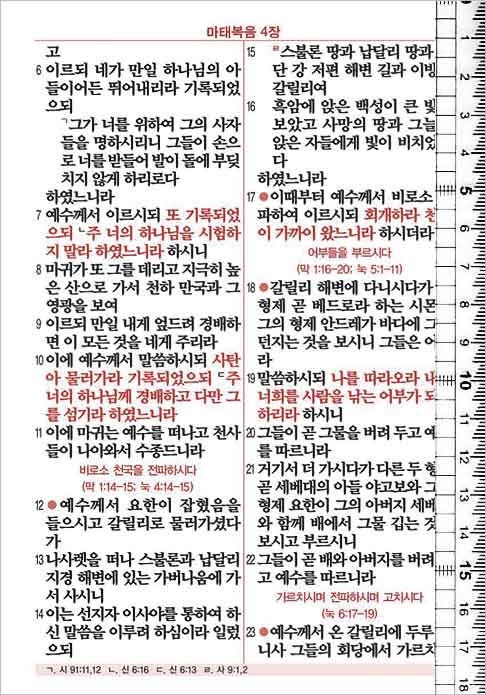 마태복음 4장
고
6 이르되 네가 만일 하나님의 아
들이어든 뛰어내리라 기록되었
으되
ㄱ그가 너를 위하여 그의 사자
들을 명하시리니 그들이 손으
로 너를 받들어 발이 돌에 부딪
치지 않게 하리로다
하였느니라
7 예수께서 이르시되 또 기록되었
으되 ㄴ주 너의 하나님을 시험하
지 말라 하였느니라 하시니
8 마귀가 또 그를 데리고 지극히 높
은 산으로 가서 천하 만국과 그
영광을 보여
9 이르되 만일 내게 엎드려 경배하
면 이 모든 것을 네게 주리라
10 이에 예수께서 말씀하시되 사탄
아 물러가라 기록되었으되 ㄷ주
너의 하나님께 경배하고 다만 그
를 섬기라 하였느니라
11 이에 마귀는 예수를 떠나고 천사
들이 나아와서 수종드니라
비로소 천국을 전파하시다
(막 1:14-15; 눅 4:14-15)
12 ●예수께서 요한이 잡혔음을
들으시고 갈릴리로 물러가셨다
가
13 나사렛을 떠나 스불론과 납달리
지경 해변에 있는 가버나움에 가
서 사시니
14 이는 선지자 이사야를 통하여 하
신 말씀을 이루려 하심이라 일렀
으되
15 ㄹ스불론 땅과 납달리 땅과
단 강 저편 해변 길과 이방
갈릴리여
16 흑암에 앉은 백성이 큰 빛
보았고 사망의 땅과 그늘
앉은 자들에게 빛이 비치었
다
하였느니라
17 ●이때부터 예수께서 비로소
파하여 이르시되 회개하라 천
이 가까이 왔느니라 하시더라
어부들을 부르시다
(막 1:16-20; 눅 5:1-11)
18 ●갈릴리 해변에 다니시다가
형제 곧 베드로라 하는 시몬
그의 형제 안드레가 바다에 그
던지는 것을 보시니 그들은 어
라
19 말씀하시되 나를 따라오라 내
너희를 사람을 낚는 어부가 되
하리라 하시니
20 그들이 곧 그물을 버려 두고 예
를 따르니라
21 거기서 더 가시다가 다른 두 형
곧 세베대의 아들 야고보와 그
형제 요한이 그의 아버지 세베
와 함께 배에서 그물 깁는 것
보시고 부르시니
22 그들이 곧 배와 아버지를 버려
고 예수를 따르니라
가르치시며 전파하시며 고치시다
(눅 6:17-19)
23 ●예수께서 온 갈릴리에 두루
니사 그들의 회당에서 가르치
ㄱ. 시 91:11,12 ㄴ. 신 6:16 ㄷ. 신 6:13 ㄹ. 사 9:1,2
1
2
3
4
5
6
7
8
9
10
11
12
13
14
15
16
17
18